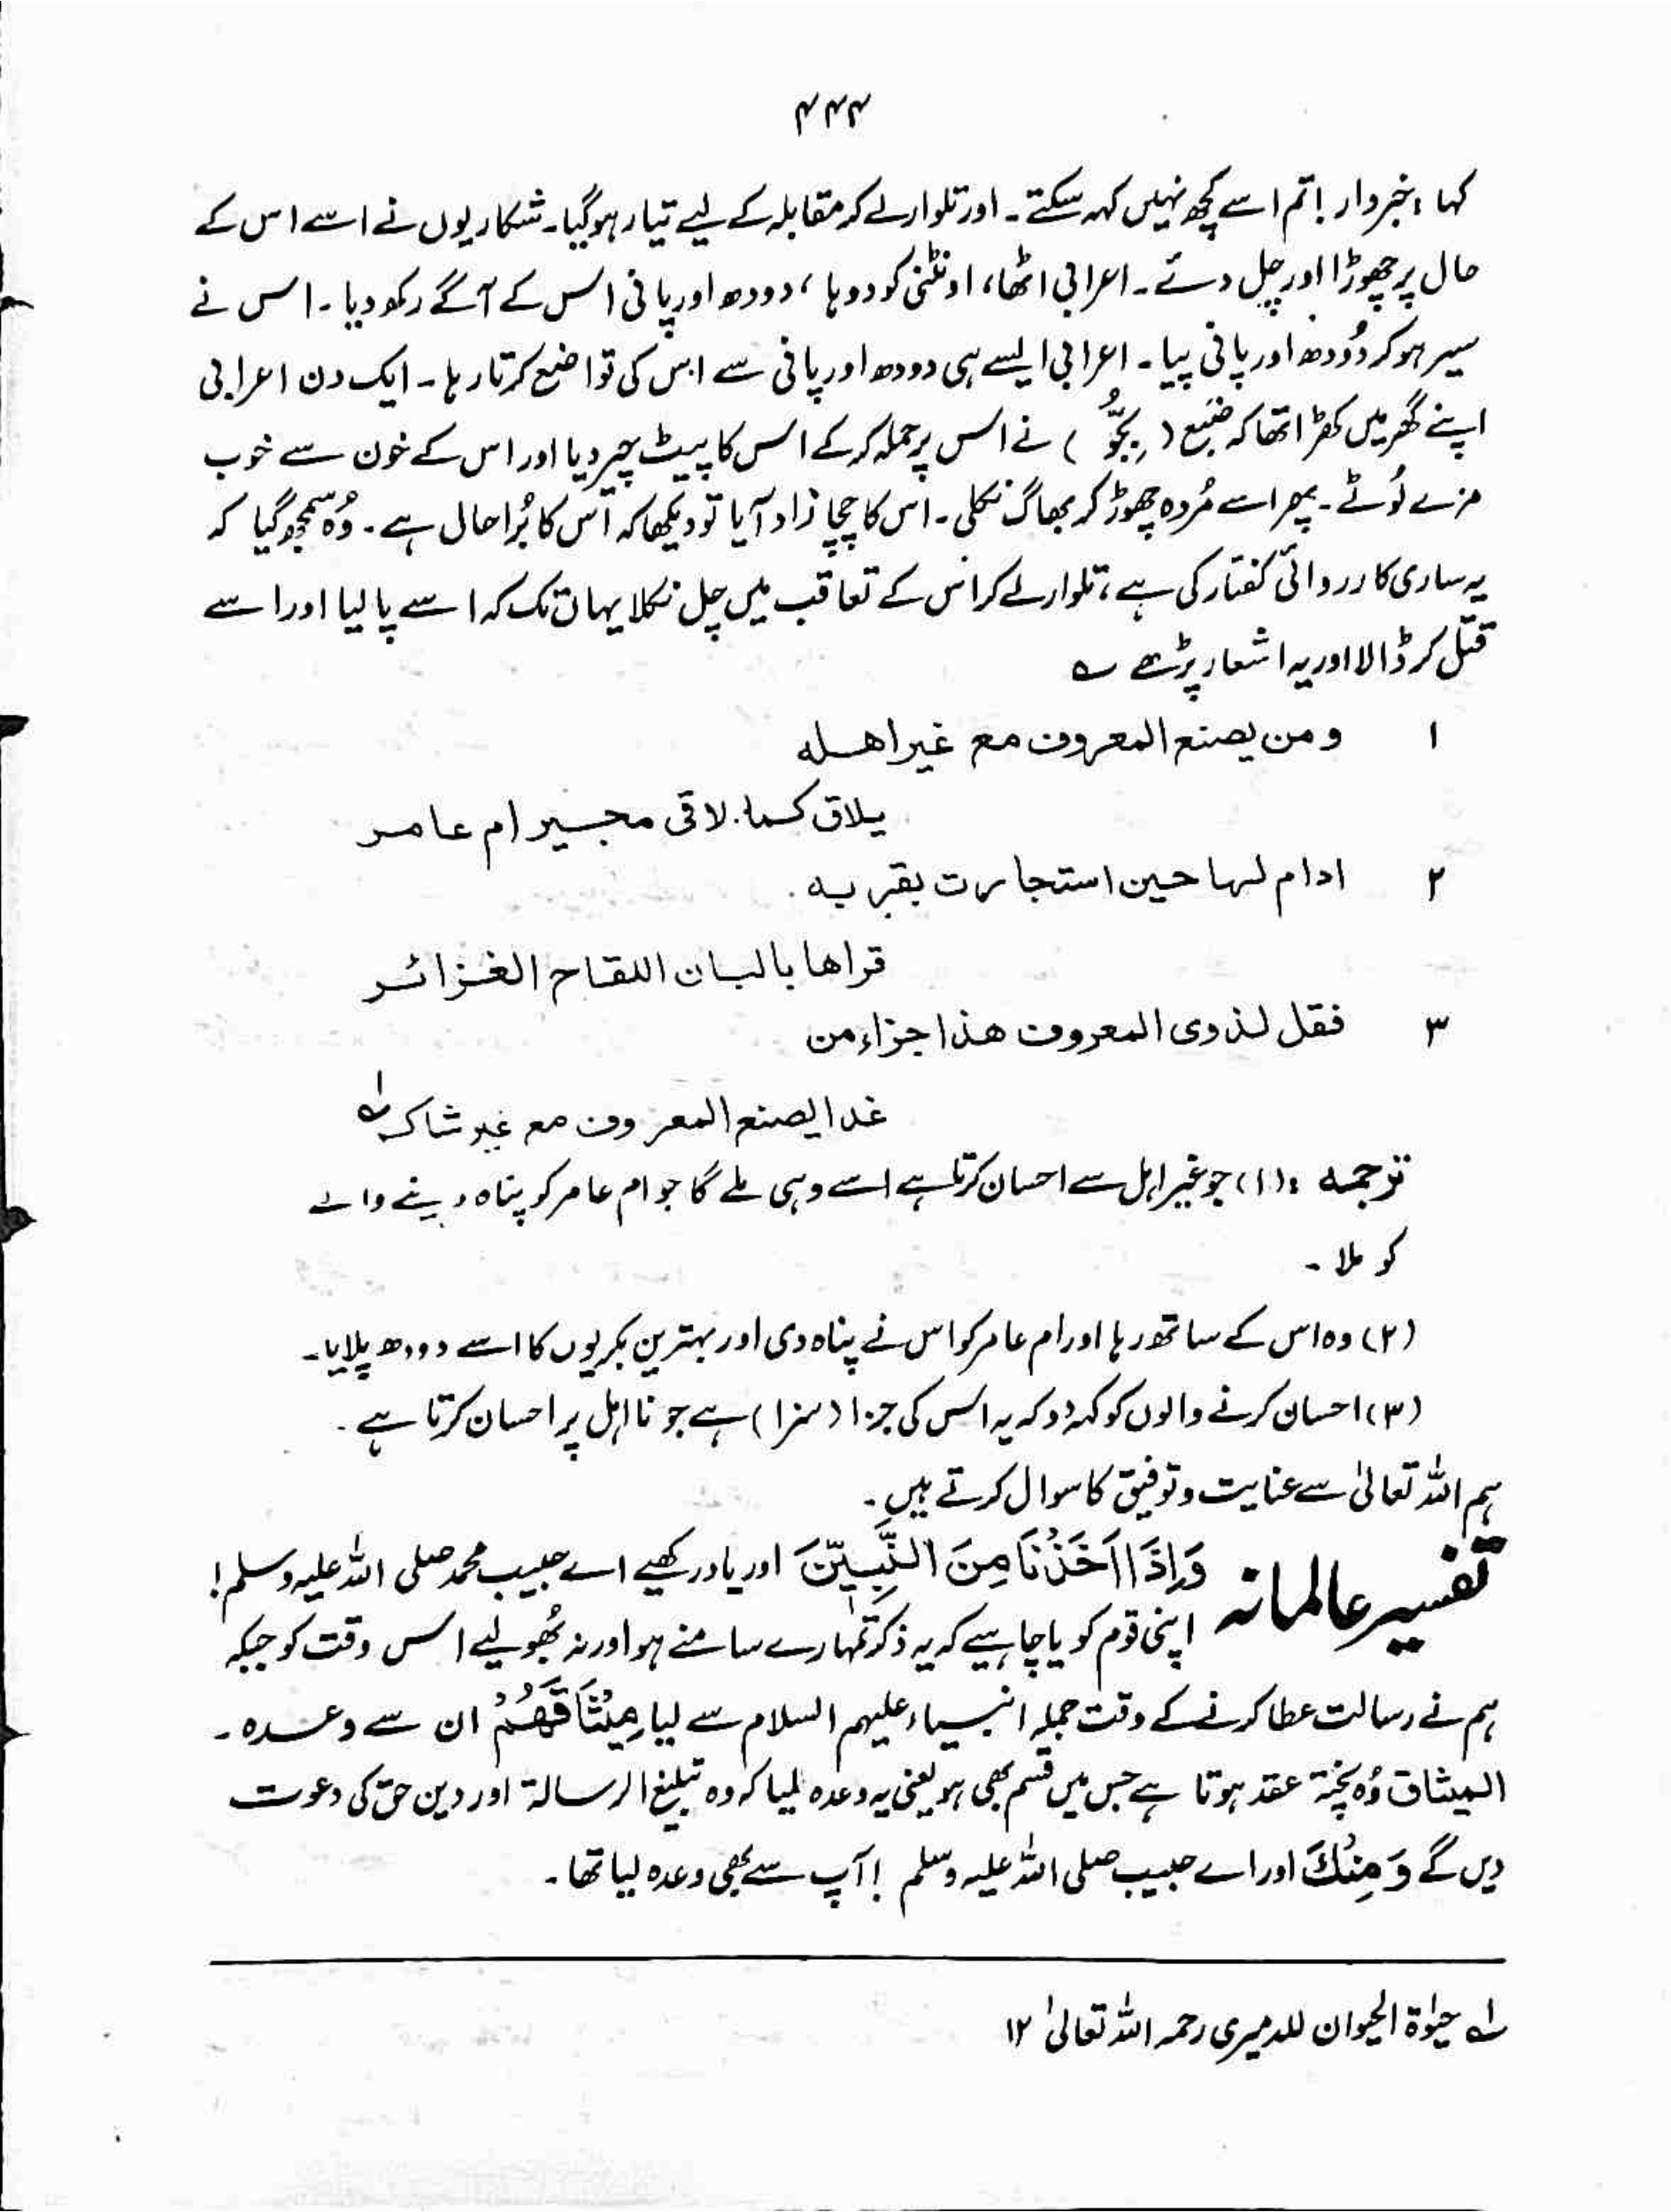 ۴۴۴
کہا، خبردار! تم اسے کچھ نہیں کہہ سکتے۔ اور تلوار لے کر مقابلہ کے لیے تیار ہو گیا۔ شکاریوں نے اسے اس کے
حال پر چھوڑا اور چل دئے۔ اعرابی اٹھا، اونٹنی کو دوہا، دودھ اور پانی اس کے آگے رکھ دیا۔ اس نے
سیر ہو کر دُودھ اور پانی پیا۔ اعرابی ایسے ہی دودھ اور پانی سے اس کی تواضع کرتا رہا۔ ایک دن اعرابی
اپنے گھر میں کھڑا تھا کہ ضبع (بِجّو) نے اس پر حملہ کر کے اس کا پیٹ چیر دیا اور اس کے خون سے خوب
مزے لُوٹے۔ پھر اسے مُردہ چھوڑ کر بھاگ نکلی۔ اس کا چچا زاد آیا تو دیکھا کہ اس کا بُرا حال ہے۔ وُہ سمجھ گیا کہ
یہ ساری کارروائی کفتار کی ہے، تلوار لے کر اس کے تعاقب میں چل نکلا یہاں تک کہ اسے پا لیا اور اسے
قتل کر ڈالا اور یہ اشعار پڑھے ؎
۱ ومن یصنع المعروف مع غیر اھلہ
یلاق کما لاقی مجیر ام عامر
۲ ادام لہا حین استجارت بقربہ
قراھا بالبان اللقاح الغزائر
۳ فقل لذوی المعروف ھذا جزاء من
غدا یصنع المعروف مع غیر شاکر ؂۱
ترجمہ : (۱) جو غیر اہل سے احسان کرتا ہے اسے وہی ملے گا جو ام عامر کو پناہ دینے والے
کو ملا۔
(۲) وہ اس کے ساتھ رہا اور ام عامر کو اس نے پناہ دی اور بہترین بکریوں کا اسے دودھ پلایا۔
(۳) احسان کرنے والوں کو کہہ دو کہ یہ اس کی جزا (سزا) ہے جو نااہل پر احسان کرتا ہے۔
ہم اللہ تعالیٰ سے عنایت و توفیق کا سوال کرتے ہیں۔
تفسیر عالمانہ وَاِذَا اَخَذْنَا مِنَ النَّبِیّٖنَ اور یاد رکھیے اے حبیب محمد صلی اللہ علیہ وسلم!
اپنی قوم کو یا چاہیے کہ یہ ذکر تمہارے سامنے ہو اور نہ بھُولیے اس وقت کو جبکہ
ہم نے رسالت عطا کرنے کے وقت جملہ انبیاء علیہم السلام سے لیا مِیْثَاقَھُمْ ان سے وعدہ۔
المیثاق وُہ پختہ عقد ہوتا ہے جس میں قسم بھی ہو یعنی یہ وعدہ لیا کہ وہ تبلیغ الرسالۃ اور دین حق کی دعوت
دیں گے وَمِنْكَ اور اے حبیب صلی اللہ علیہ وسلم ! آپ سے بھی وعدہ لیا تھا۔
؂۱ حیٰوۃ الحیوان للدمیری رحمہ اللہ تعالیٰ ۱۲